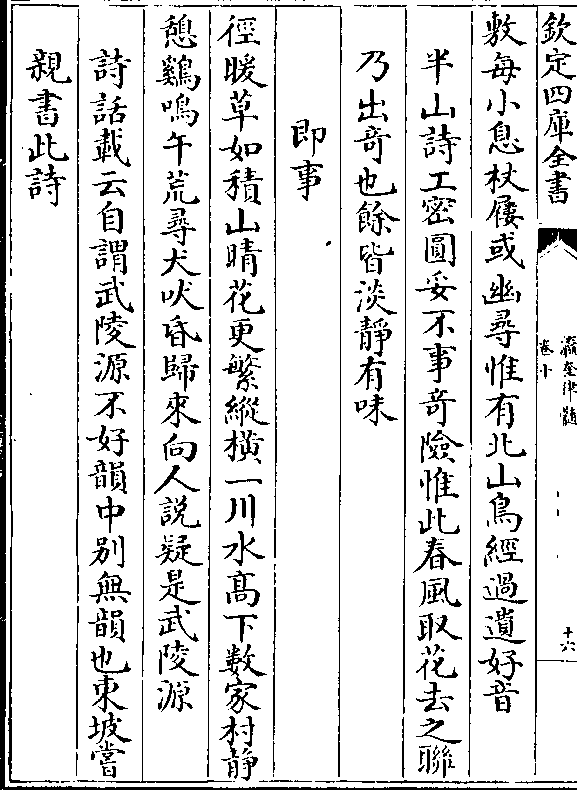 欽定四庫全書
瀛奎律髓
卷十
十六
敷每小息杖屨或幽尋惟有北山鳥經過遺好音
半山詩工密圓妥不事奇險惟此春風取花去之聯
乃出奇也餘皆淡靜有味
即事
徑暖草如積山晴花更繁縱橫一川水高下數家村靜
憩鷄鳴午荒尋犬吠昏歸來向人說疑是武陵源
詩話載云自謂武陵源不好韻中别無韻也東坡嘗
親書此詩